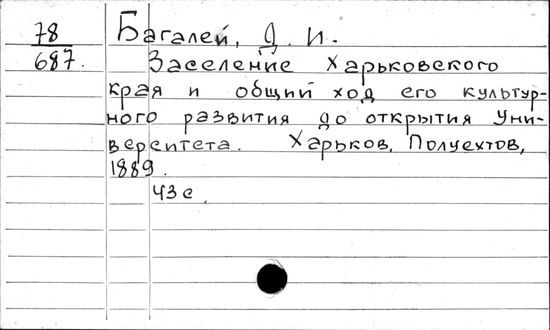 78 Багалей, Д. И.
687. Заселение Харьковского
края и общий ход его культур-
ного развития до открытия Уни-
верситета. Харьков, Полуехтов,
1889.
43 с.